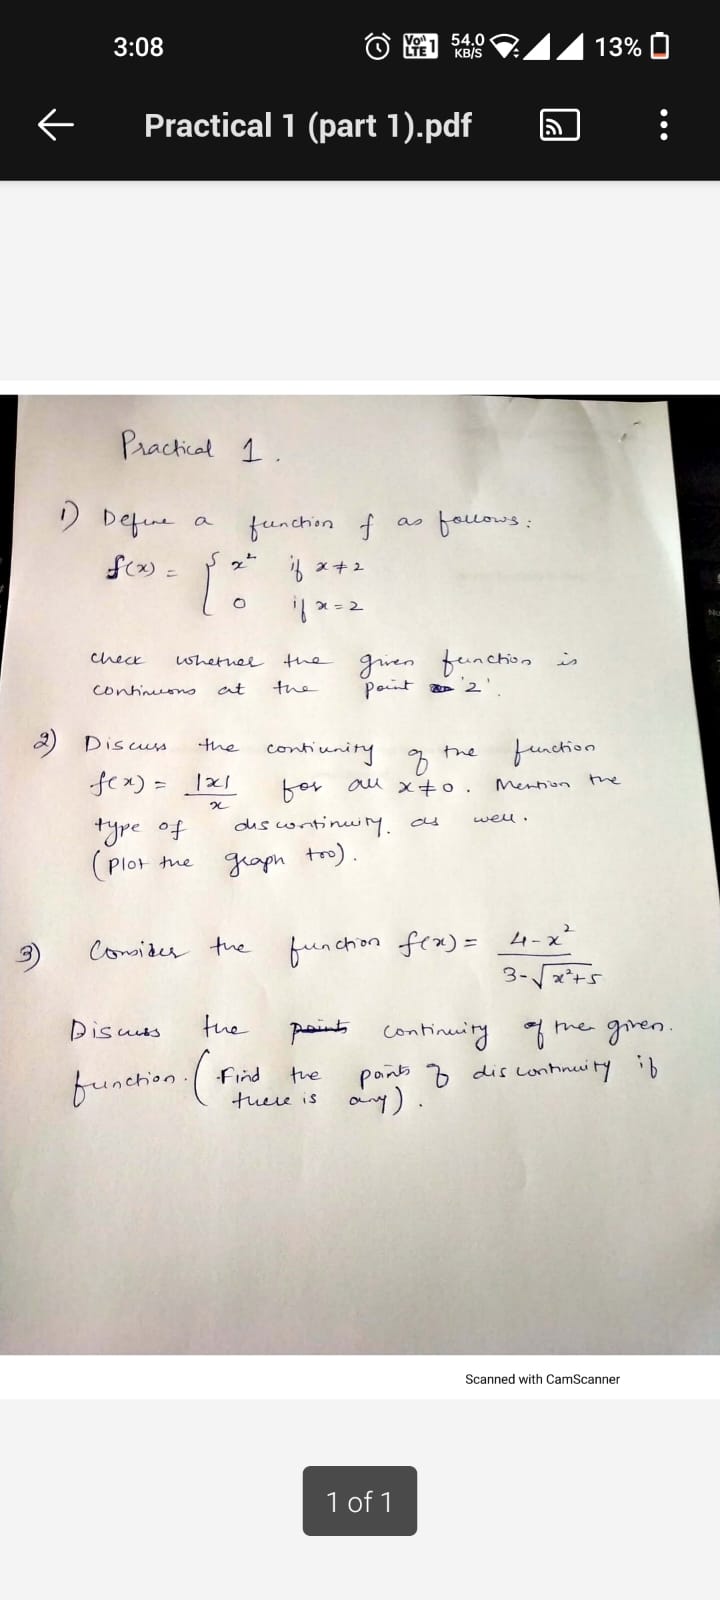 3:08 Vo)) LTE 1 54.0 KB/S 13%
Practical 1 (part 1).pdf
Practical 1.
1) Define a function f as follows:
f(x) = { x² if x≠2
0 if x=2
check whether the given function is
continuous at the point '2'.
2) Discuss the contiunity of the function
f(x) = |x|/x for all x≠0. Mention the
type of discontinuity. as well.
(Plot the graph too).
3) Consider the function f(x) = 4-x² / 3-√x²+5
Discuss the points continuity of the given.
function. (Find the points of discontinuity if
there is any).
Scanned with CamScanner
1 of 1